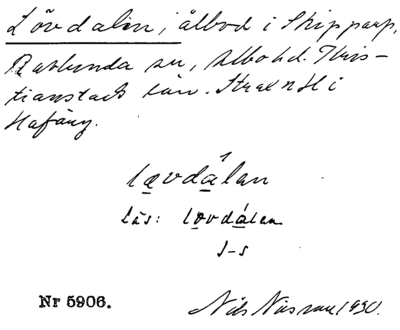 Lövdalen, ålbod i Skipparp,
Ravlunda sn, Albo hd. Kris-
tianstads län. Strax N H i
Hafäng.
lǫvdálan
läs: lovdálan
s-s
Nr 5906.
Nils Näsman 1930.